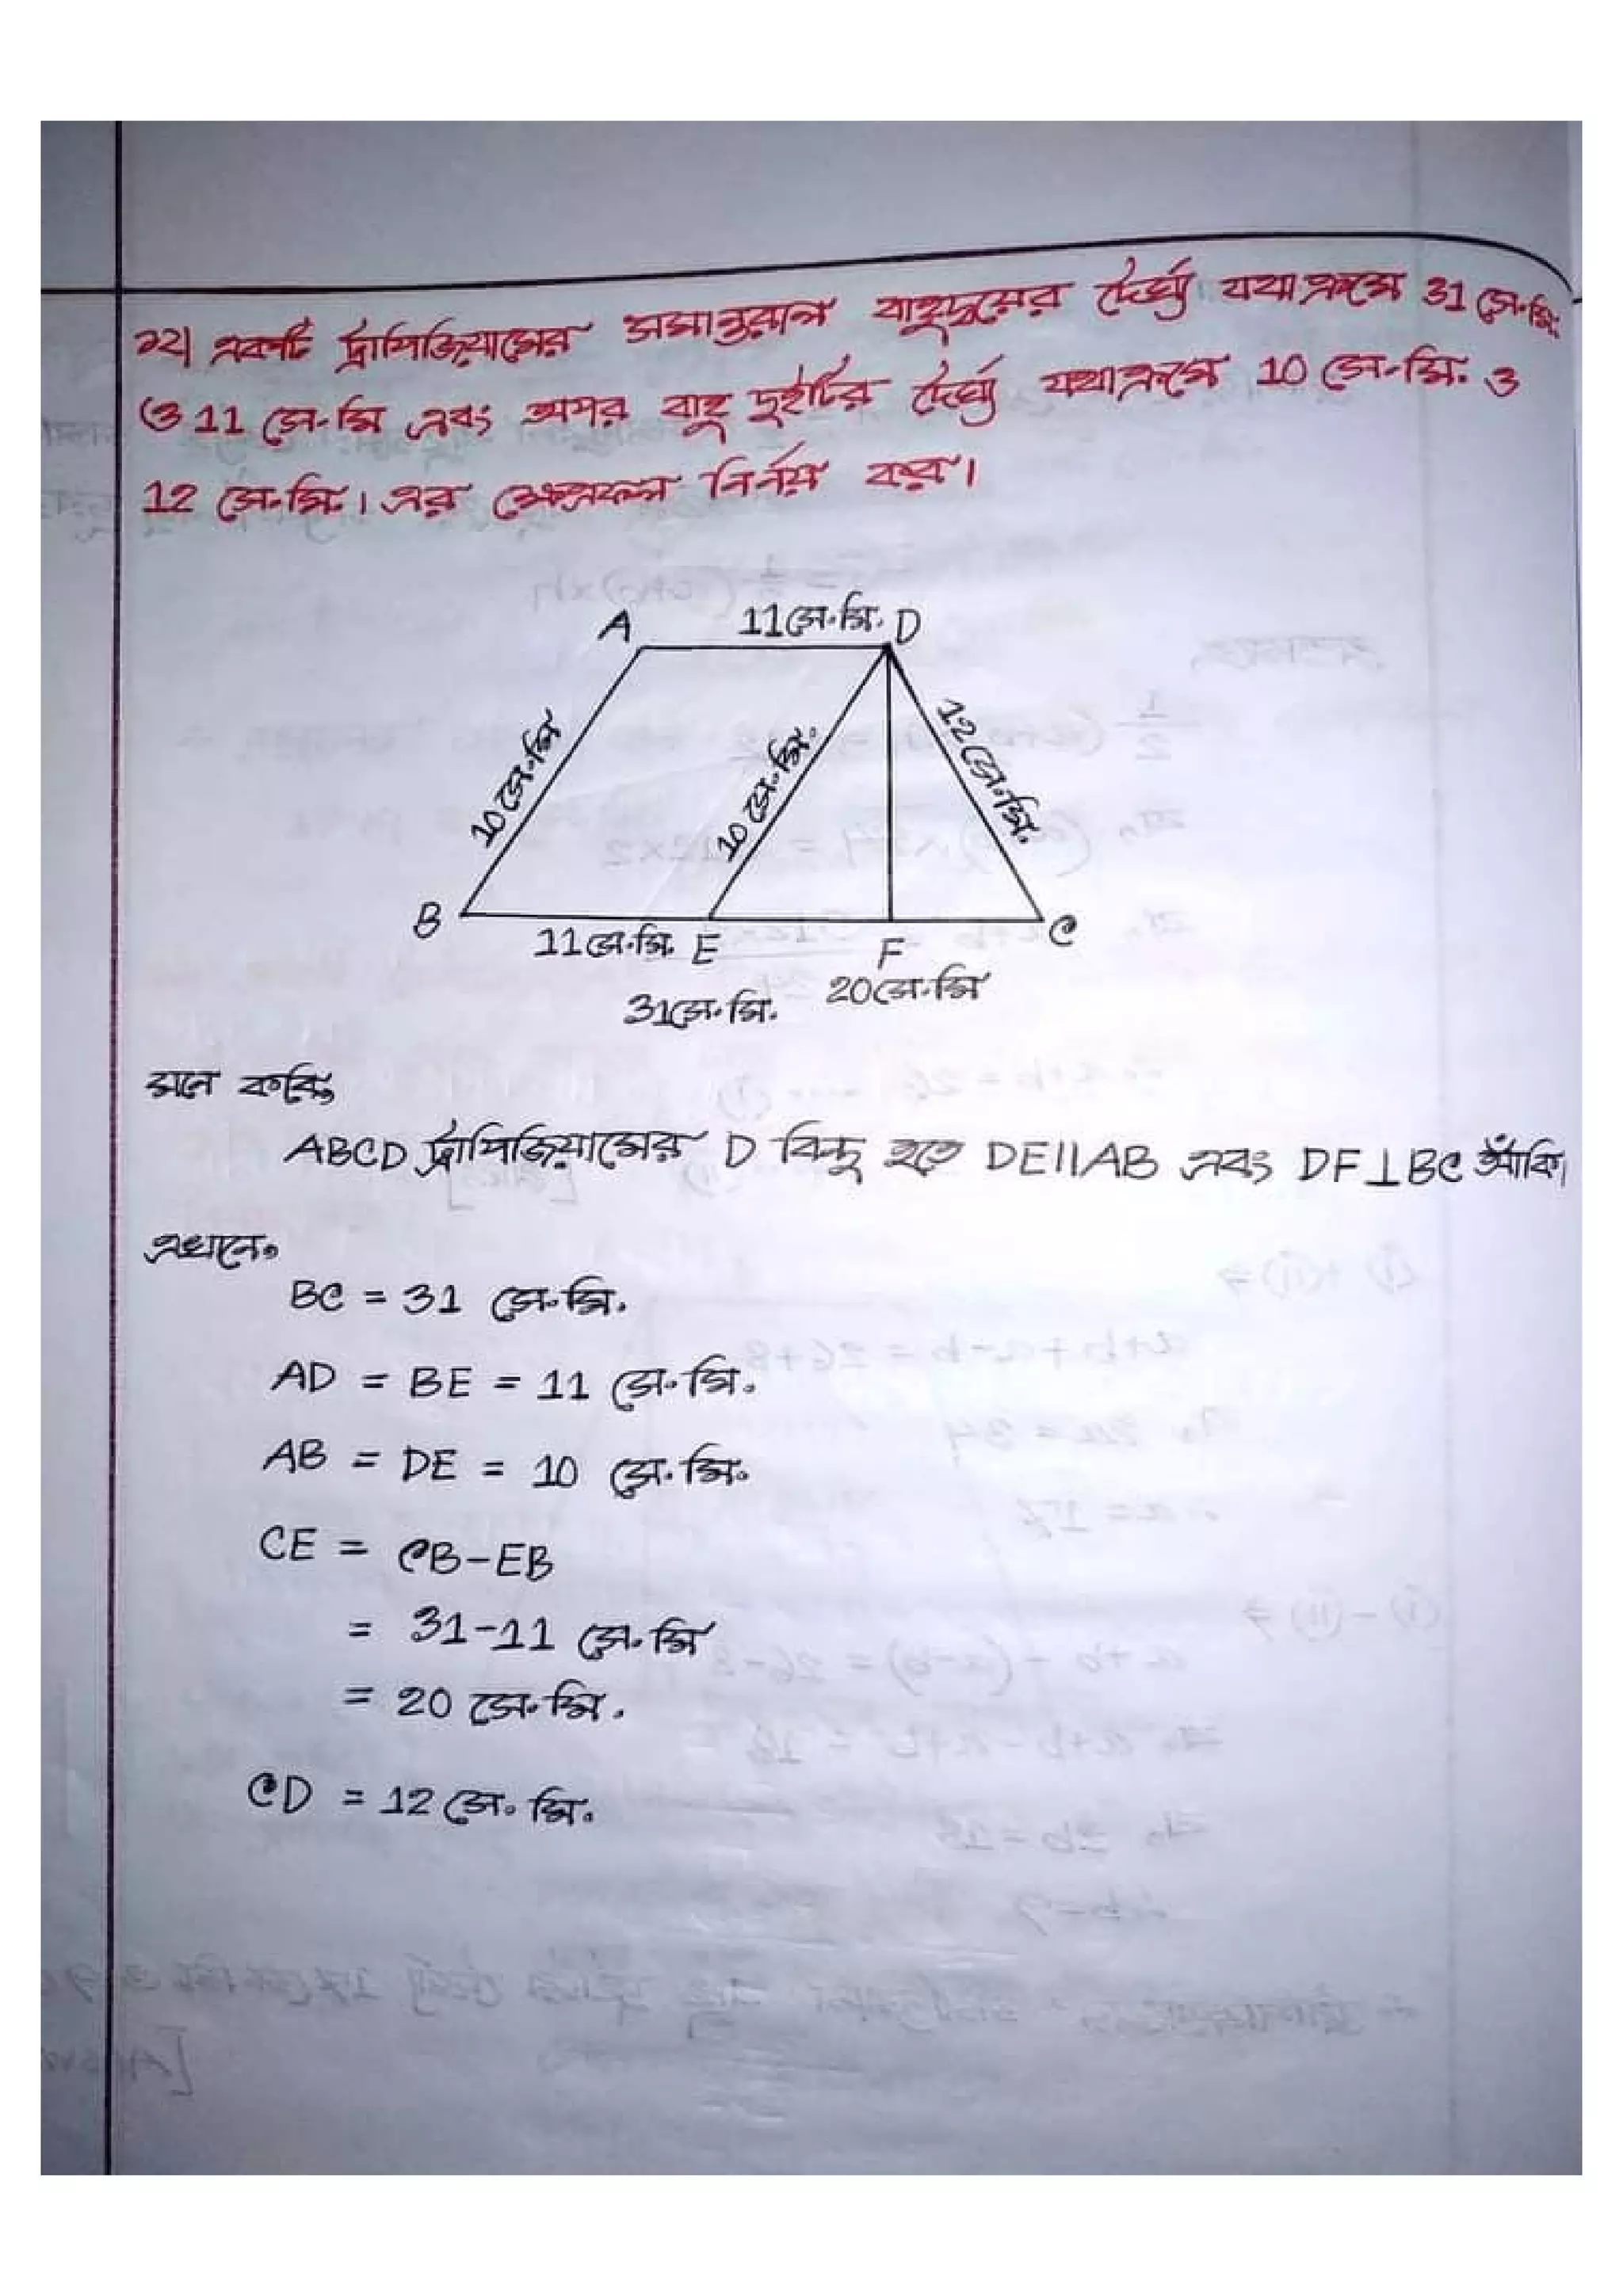 ১২| একটি ট্রাপিজিয়ামের সমান্তরাল বাহুদ্বয়ের দৈর্ঘ্য যথাক্রমে 31 সে.মি.
ও 11 সে.মি এবং অপর বাহু দুইটির দৈর্ঘ্য যথাক্রমে 10 সে.মি. ও
12 সে.মি.। এর ক্ষেত্রফল নির্নয় কর।
A 11 সে.মি. D
10 সে.মি
10 সে.মি.
12 সে.মি.
B 11 সে.মি. E F C
31 সে.মি. 20 সে.মি
মনে করি,
ABCD ট্রাপিজিয়ামের D বিন্দু হতে DE||AB এবং DF⊥BC আঁকি।
এখানে,
BC = 31 সে.মি.
AD = BE = 11 সে.মি.
AB = DE = 10 সে.মি.
CE = CB-EB
= 31-11 সে.মি
= 20 সে.মি.
CD = 12 সে. মি.